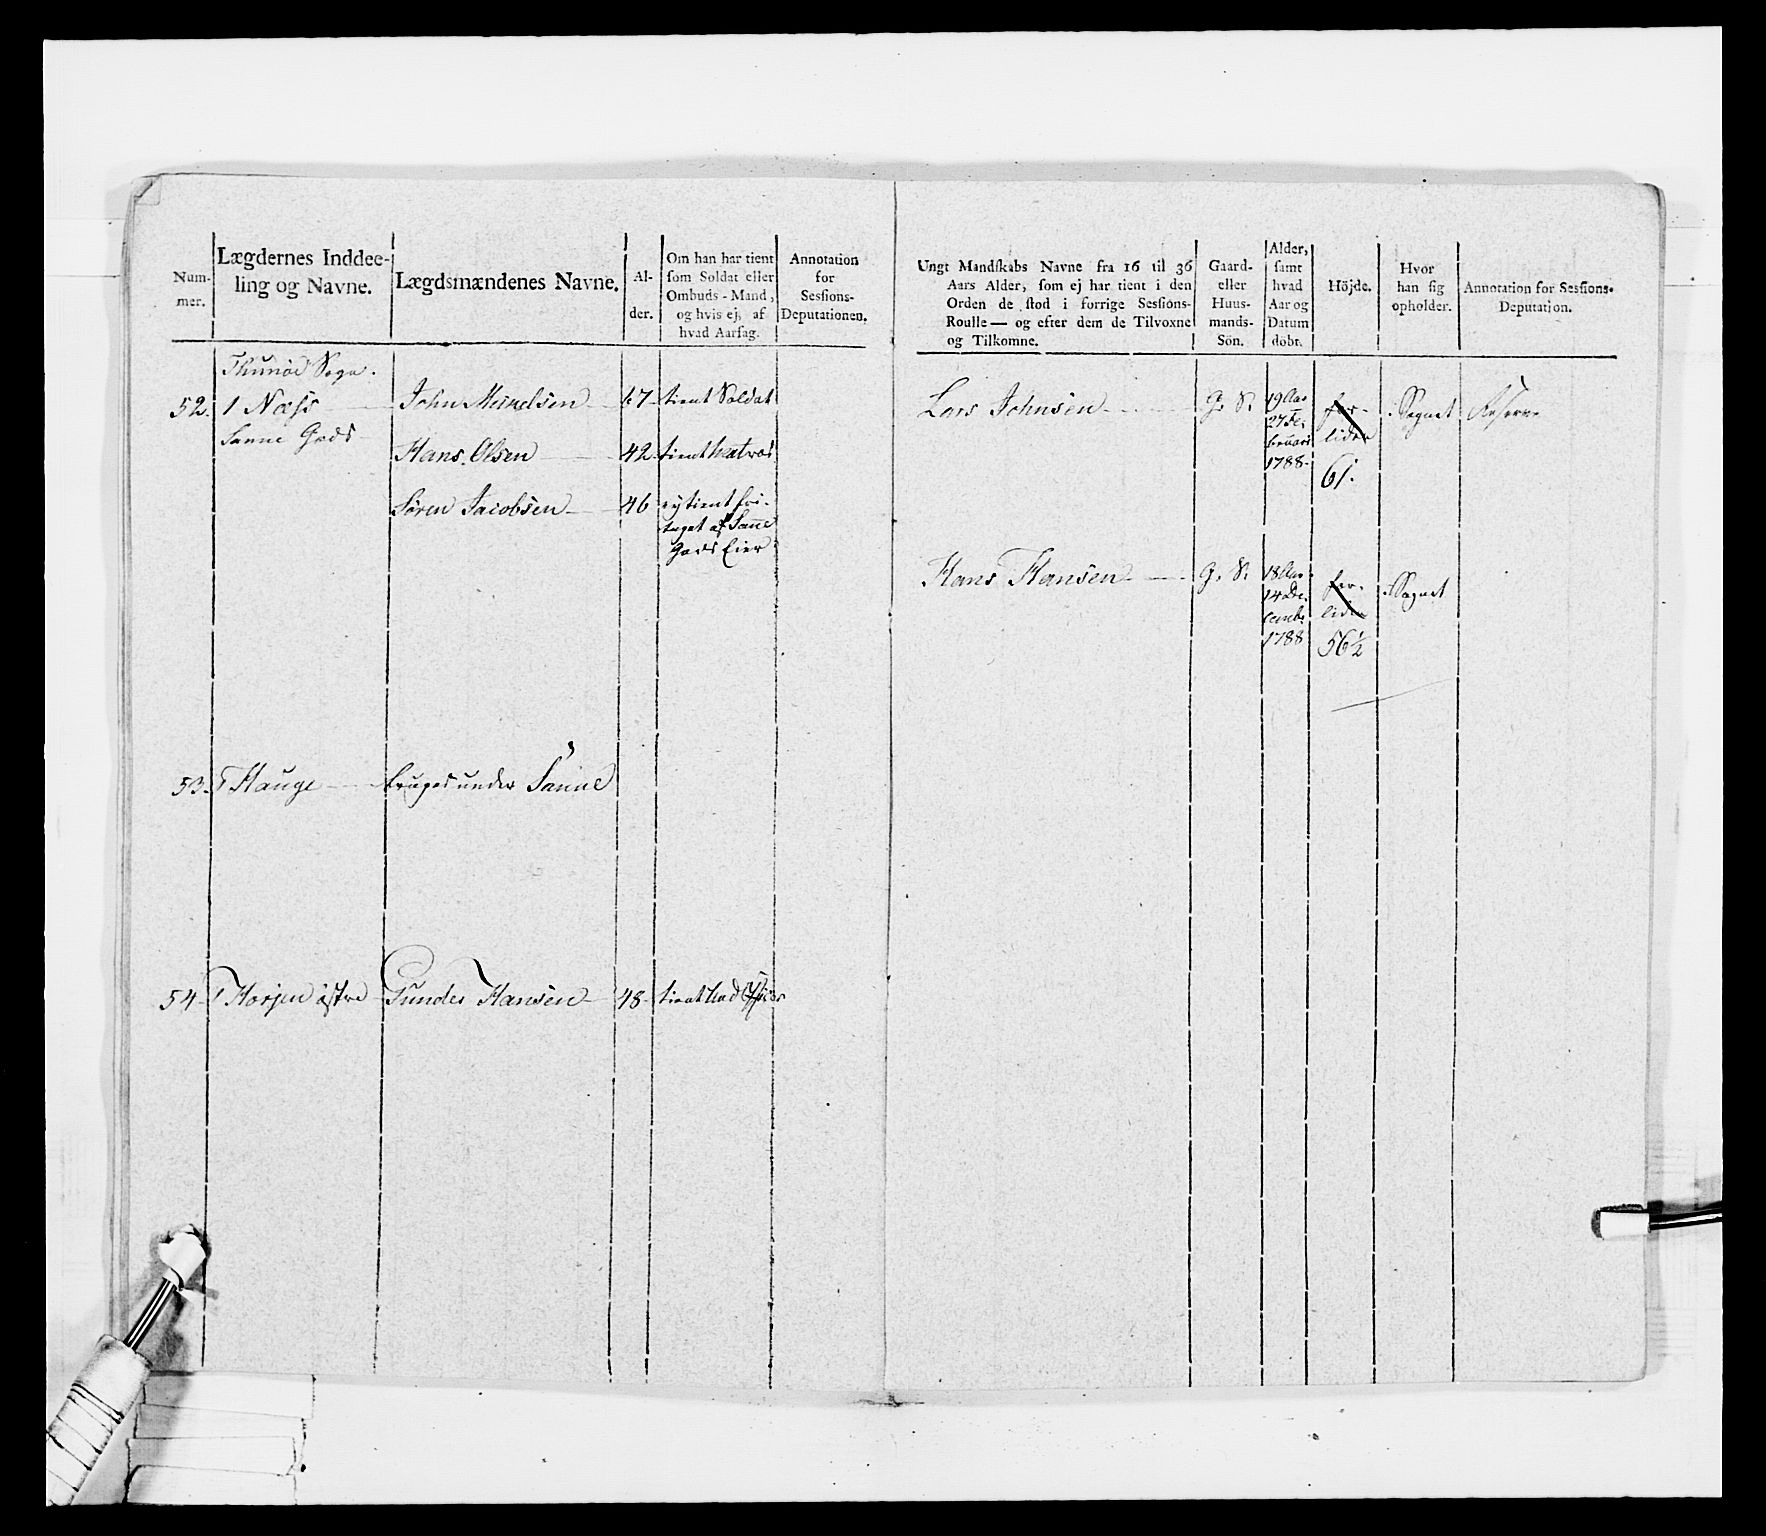 Num-
mer.
Lægdernes Inddee-
ling og Navne.
Lægdsmændenes Navne.
Al-
der.
Om han har tient
som Soldat eller
Ombuds-Mand,
og hvis ej, af
hvad Aarsag.
Annotation
for
Sessions-
Deputationen.
Ungt Mandskabs Navne fra 16 til 36
Aars Alder, som ej har tient i den
Orden de stod i forrige Sessions-
Roulle — og efter dem de Tilvoxne
og Tilkomne.
Gaard-
eller
Huus-
mands-
Sön.
Alder,
samt
hvad
Aar og
Datum
döbt.
Höjde.
Hvor
han sig
opholder.
Annotation for Sessions-
Deputation.
Thunöe Sogn.
52. 1 Næss John Mickelsen 67 tient Soldat
Sanne Gods
Hans Olsen 42 tient
Sören Jacobsen 46 ej tient fri-
taget af Sanne
Gods Eier
Lars Johnsen G. S. 19 Aar for- Sognet Reserve
27 Fe- liden
bruari
1788 61.
Hans Hansen G. S. 18 Aar for- Sognet
14 De- liden
cembr
1788 56½
53. 1 Hauge bruges under Sanne
54 1 Horjen östre Gunder Hansen 48 tient